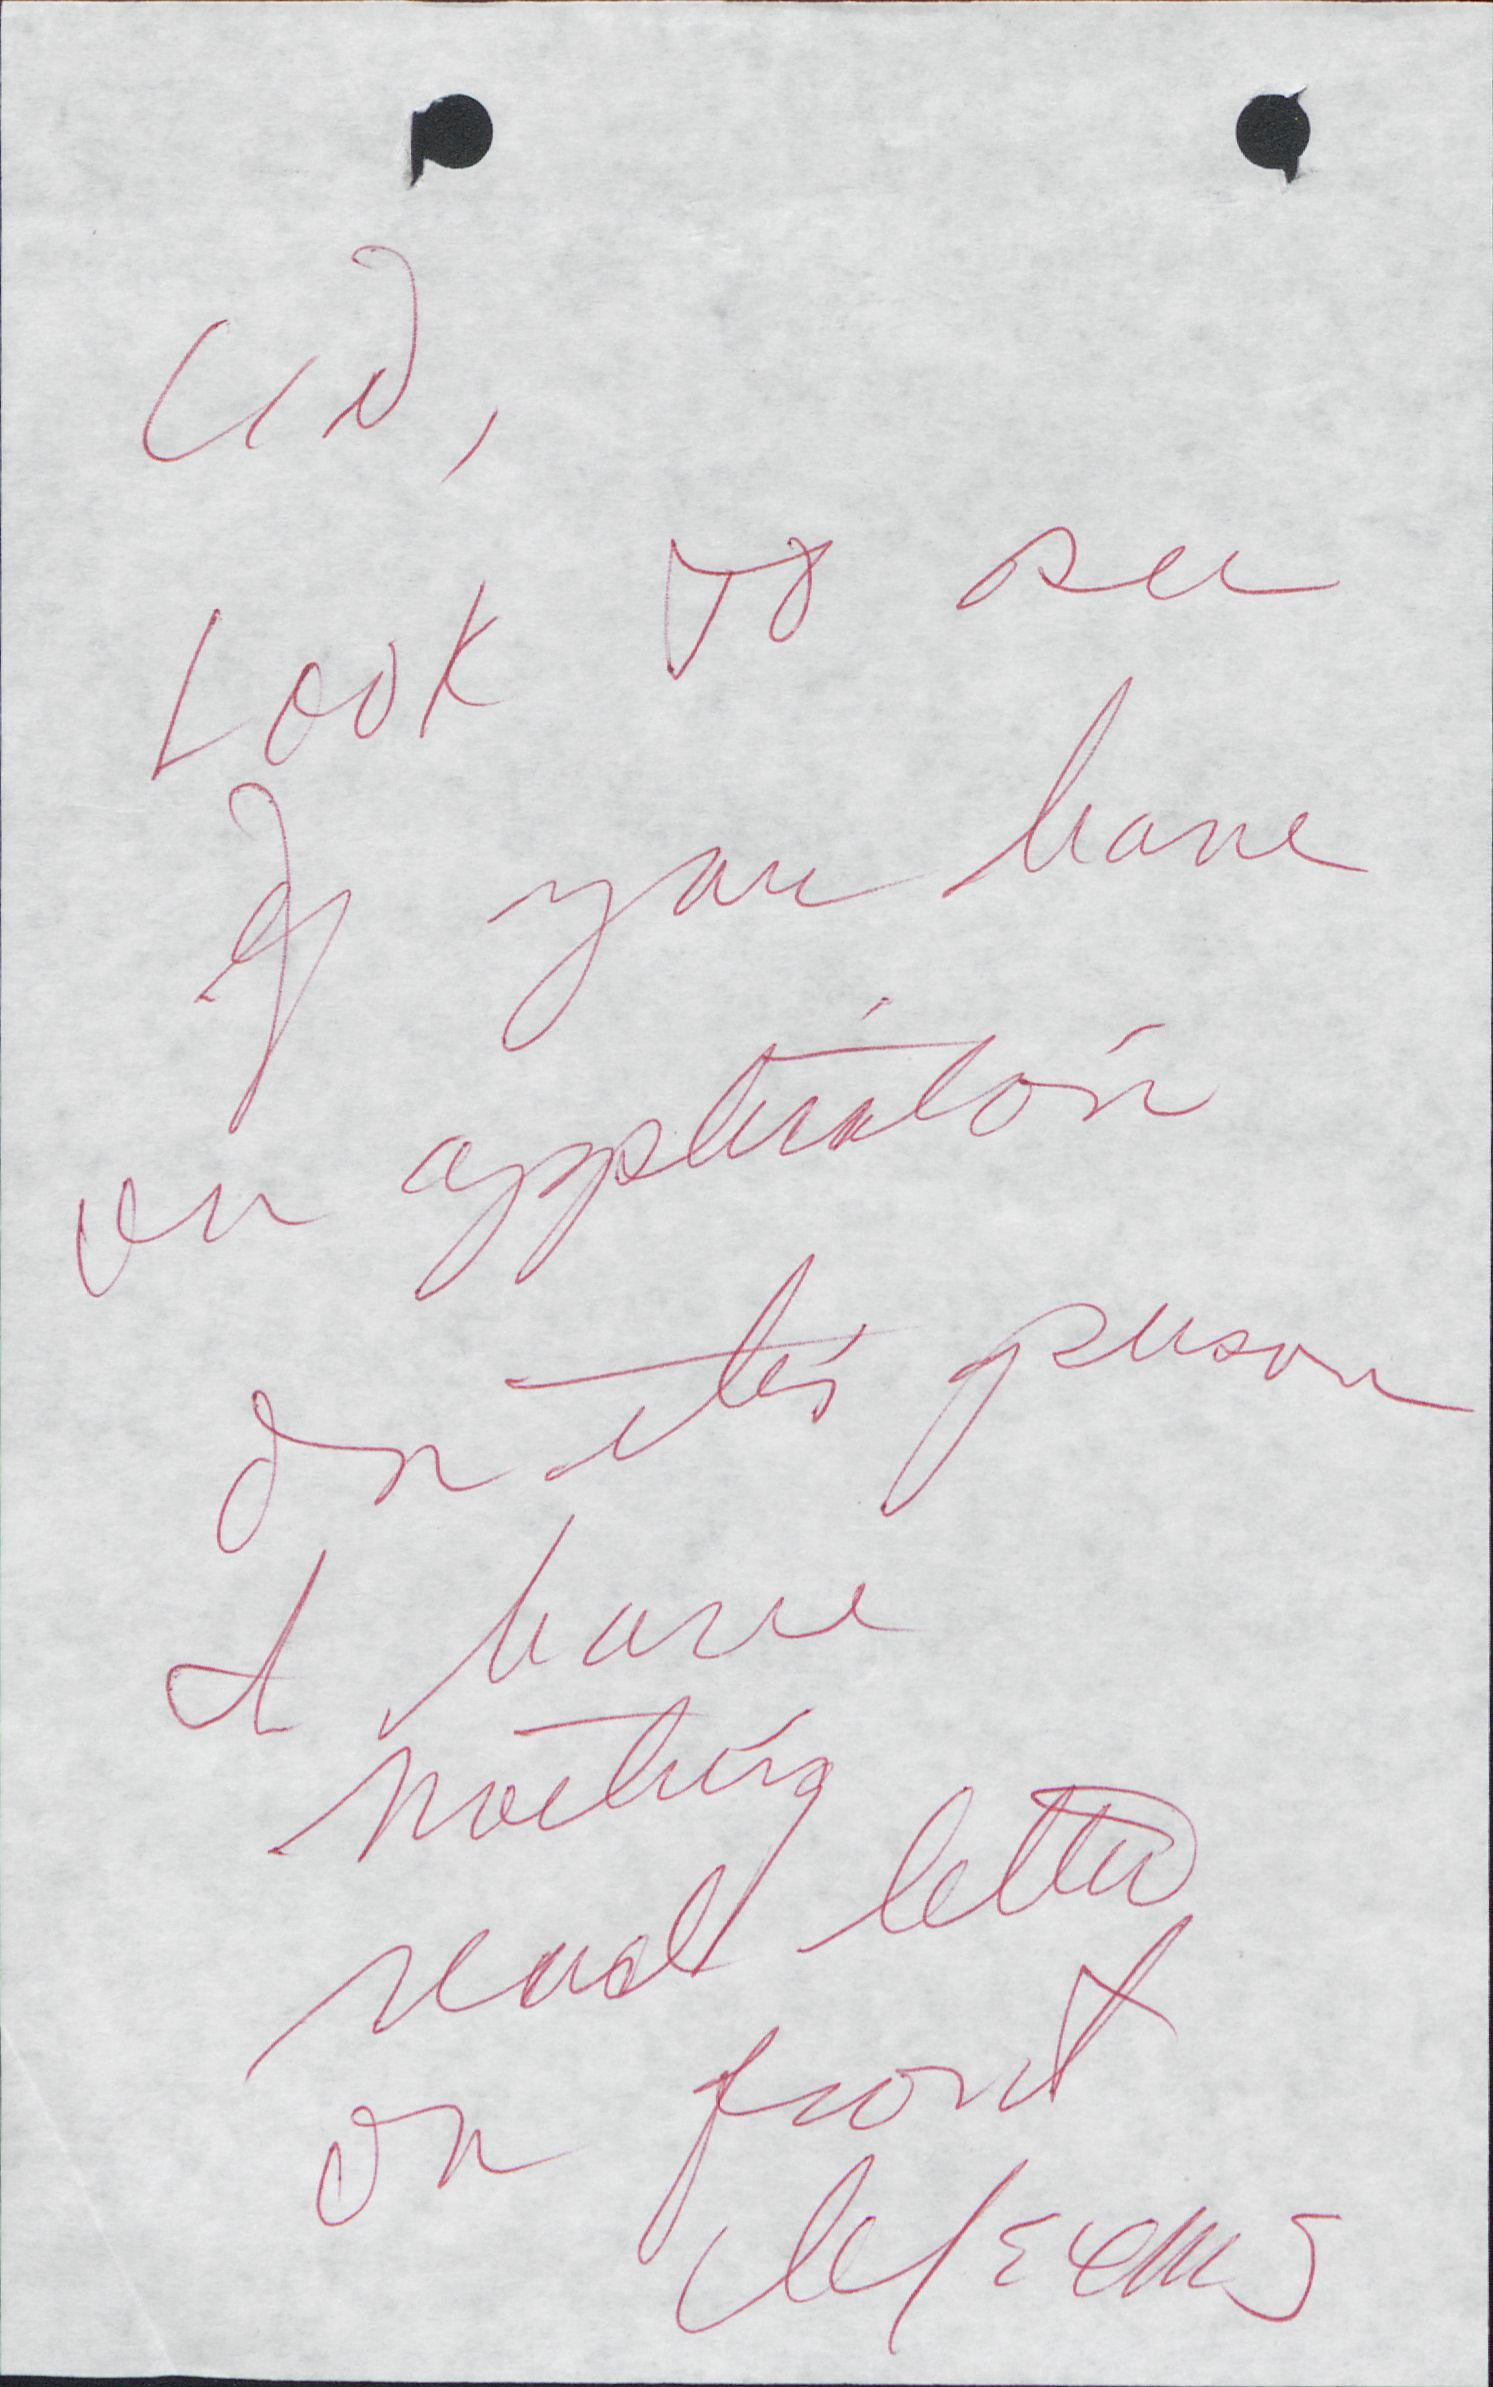 Look to see
if you have
an application
on this person
I have
nothing
read letter
on front